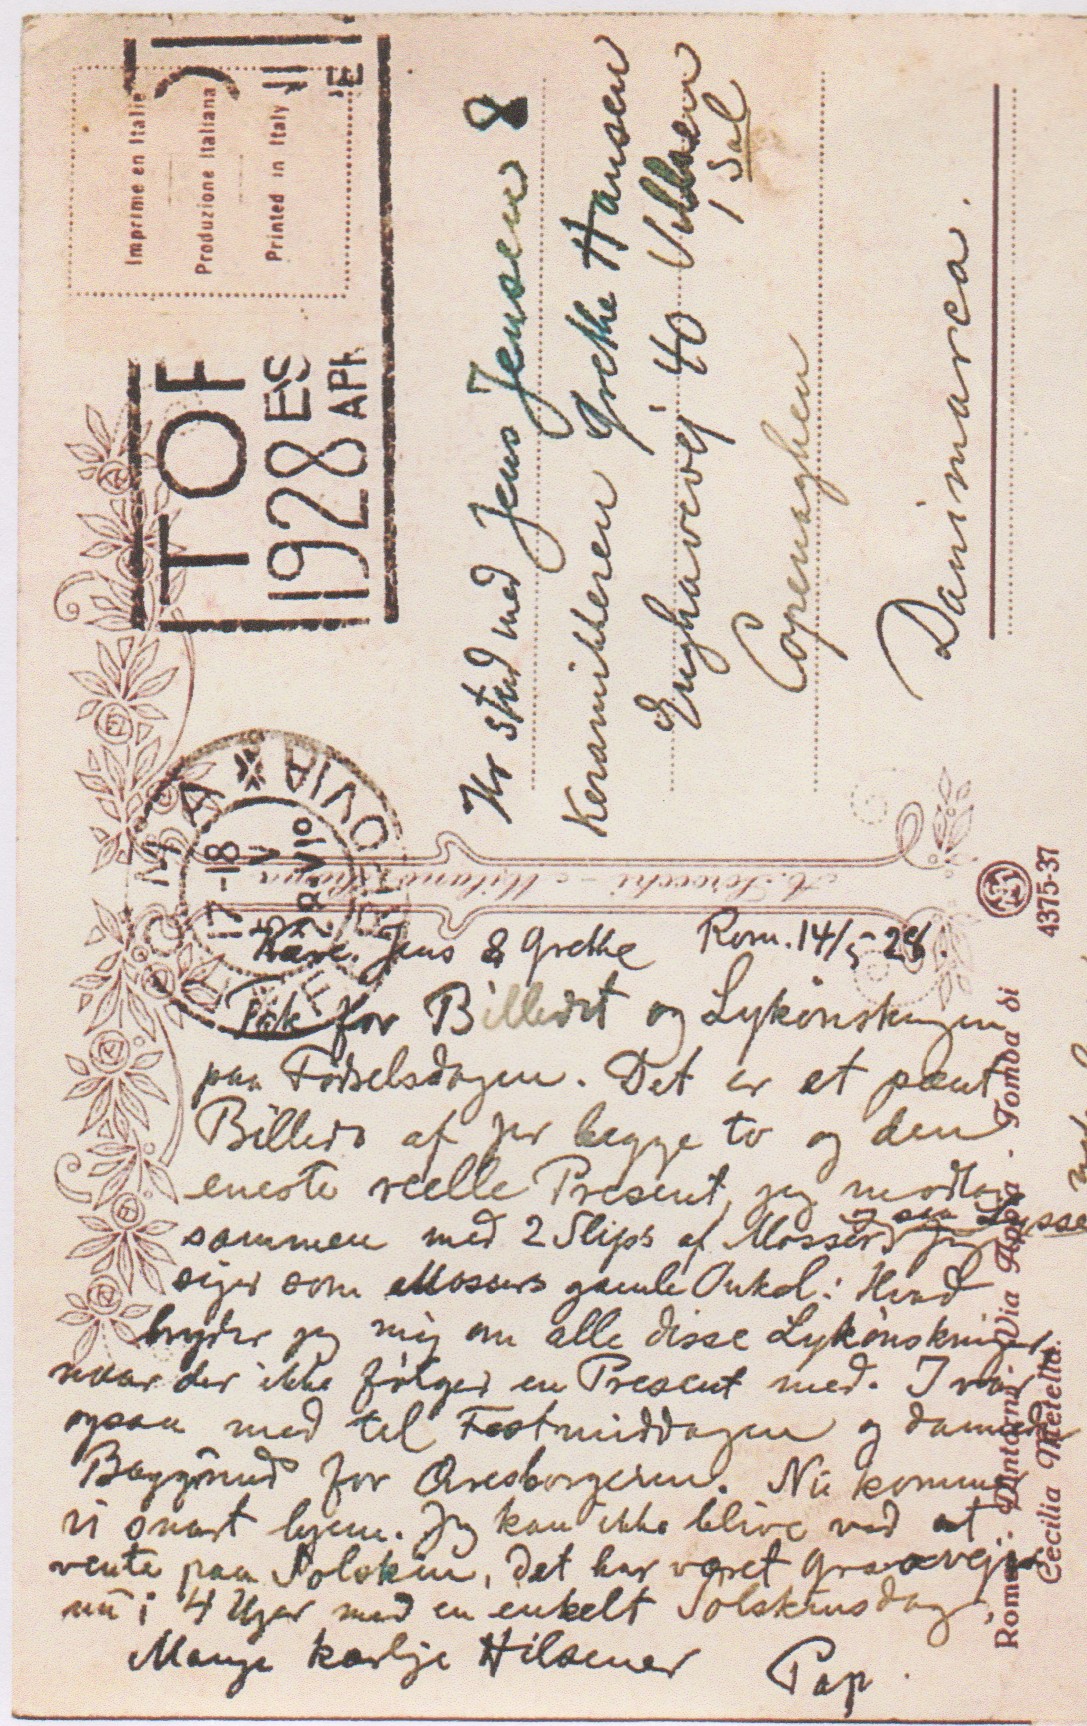 Kære Jens & Grethe Rom. 14/5-28.
Tak for Billedet og Lykønskningen
paa Fødselsdagen. Det er et pænt
Billede af Jer begge to og den
eneste reelle Present, jeg modtog
sammen med 2 Slips af Mosser og en Lysse
Jeg
siger som Mossers gamle Onkel: Hvad
bryder jeg mig om alle disse Lykønskninger
naar der ikke følger en Present med. I var
ogsaa med til Festmiddagen og dannede
Baggrund for Æresborgeren. Nu kommer
vi snart hjem. Jeg kan ikke blive ved at
vente paa Solskin, det har været Graavejr
nu i 4 Uger med en enkelt Solskinsdag
Mange kærlige Hilsener Pap.
Hr stud med Jens Jensen &
Keramikeren Grethe Hansen
Enghavevej 40 Valby
1 Sal
Copenaghen
Danimarca.
Imprimé en Italie
Produzione Italiana
Printed in Italy
TOF
1928 ES
APR
ROMA
FERROVIA
17-18
V
28-VI°
A. Scrocchi - Milano
4375-37
Roma - Dintorni - Via Appia - Tomba di
Cecilia Metella.